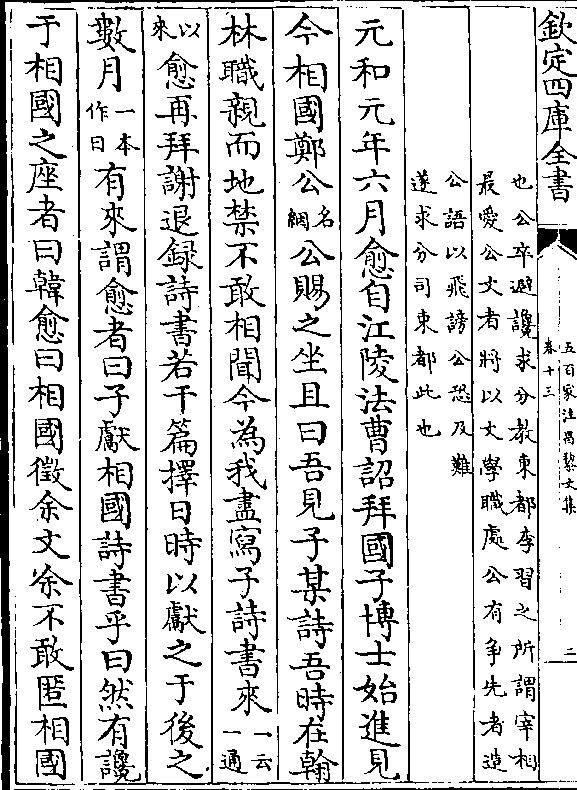 欽定四庫全書
五百家注昌黎文集
卷十三
二
也公卒避讒求分教東都李習之所謂宰相
最愛公文者將以文學職處公有爭先者造
公語以飛謗公恐及難
遂求分司東都此也
元和元年六月愈自江陵法曹詔拜國子博士始進見
今相國鄭公名絪公賜之坐且曰吾見子某詩吾時在翰
林職親而地禁不敢相聞今為我盡寫子詩書來一云一通
以來愈再拜謝退録詩書若干篇擇日時以獻之于後之
數月一本作日有來謂愈者曰子獻相國詩書乎曰然有讒
于相國之座者曰韓愈曰相國徵余文余不敢匿相國